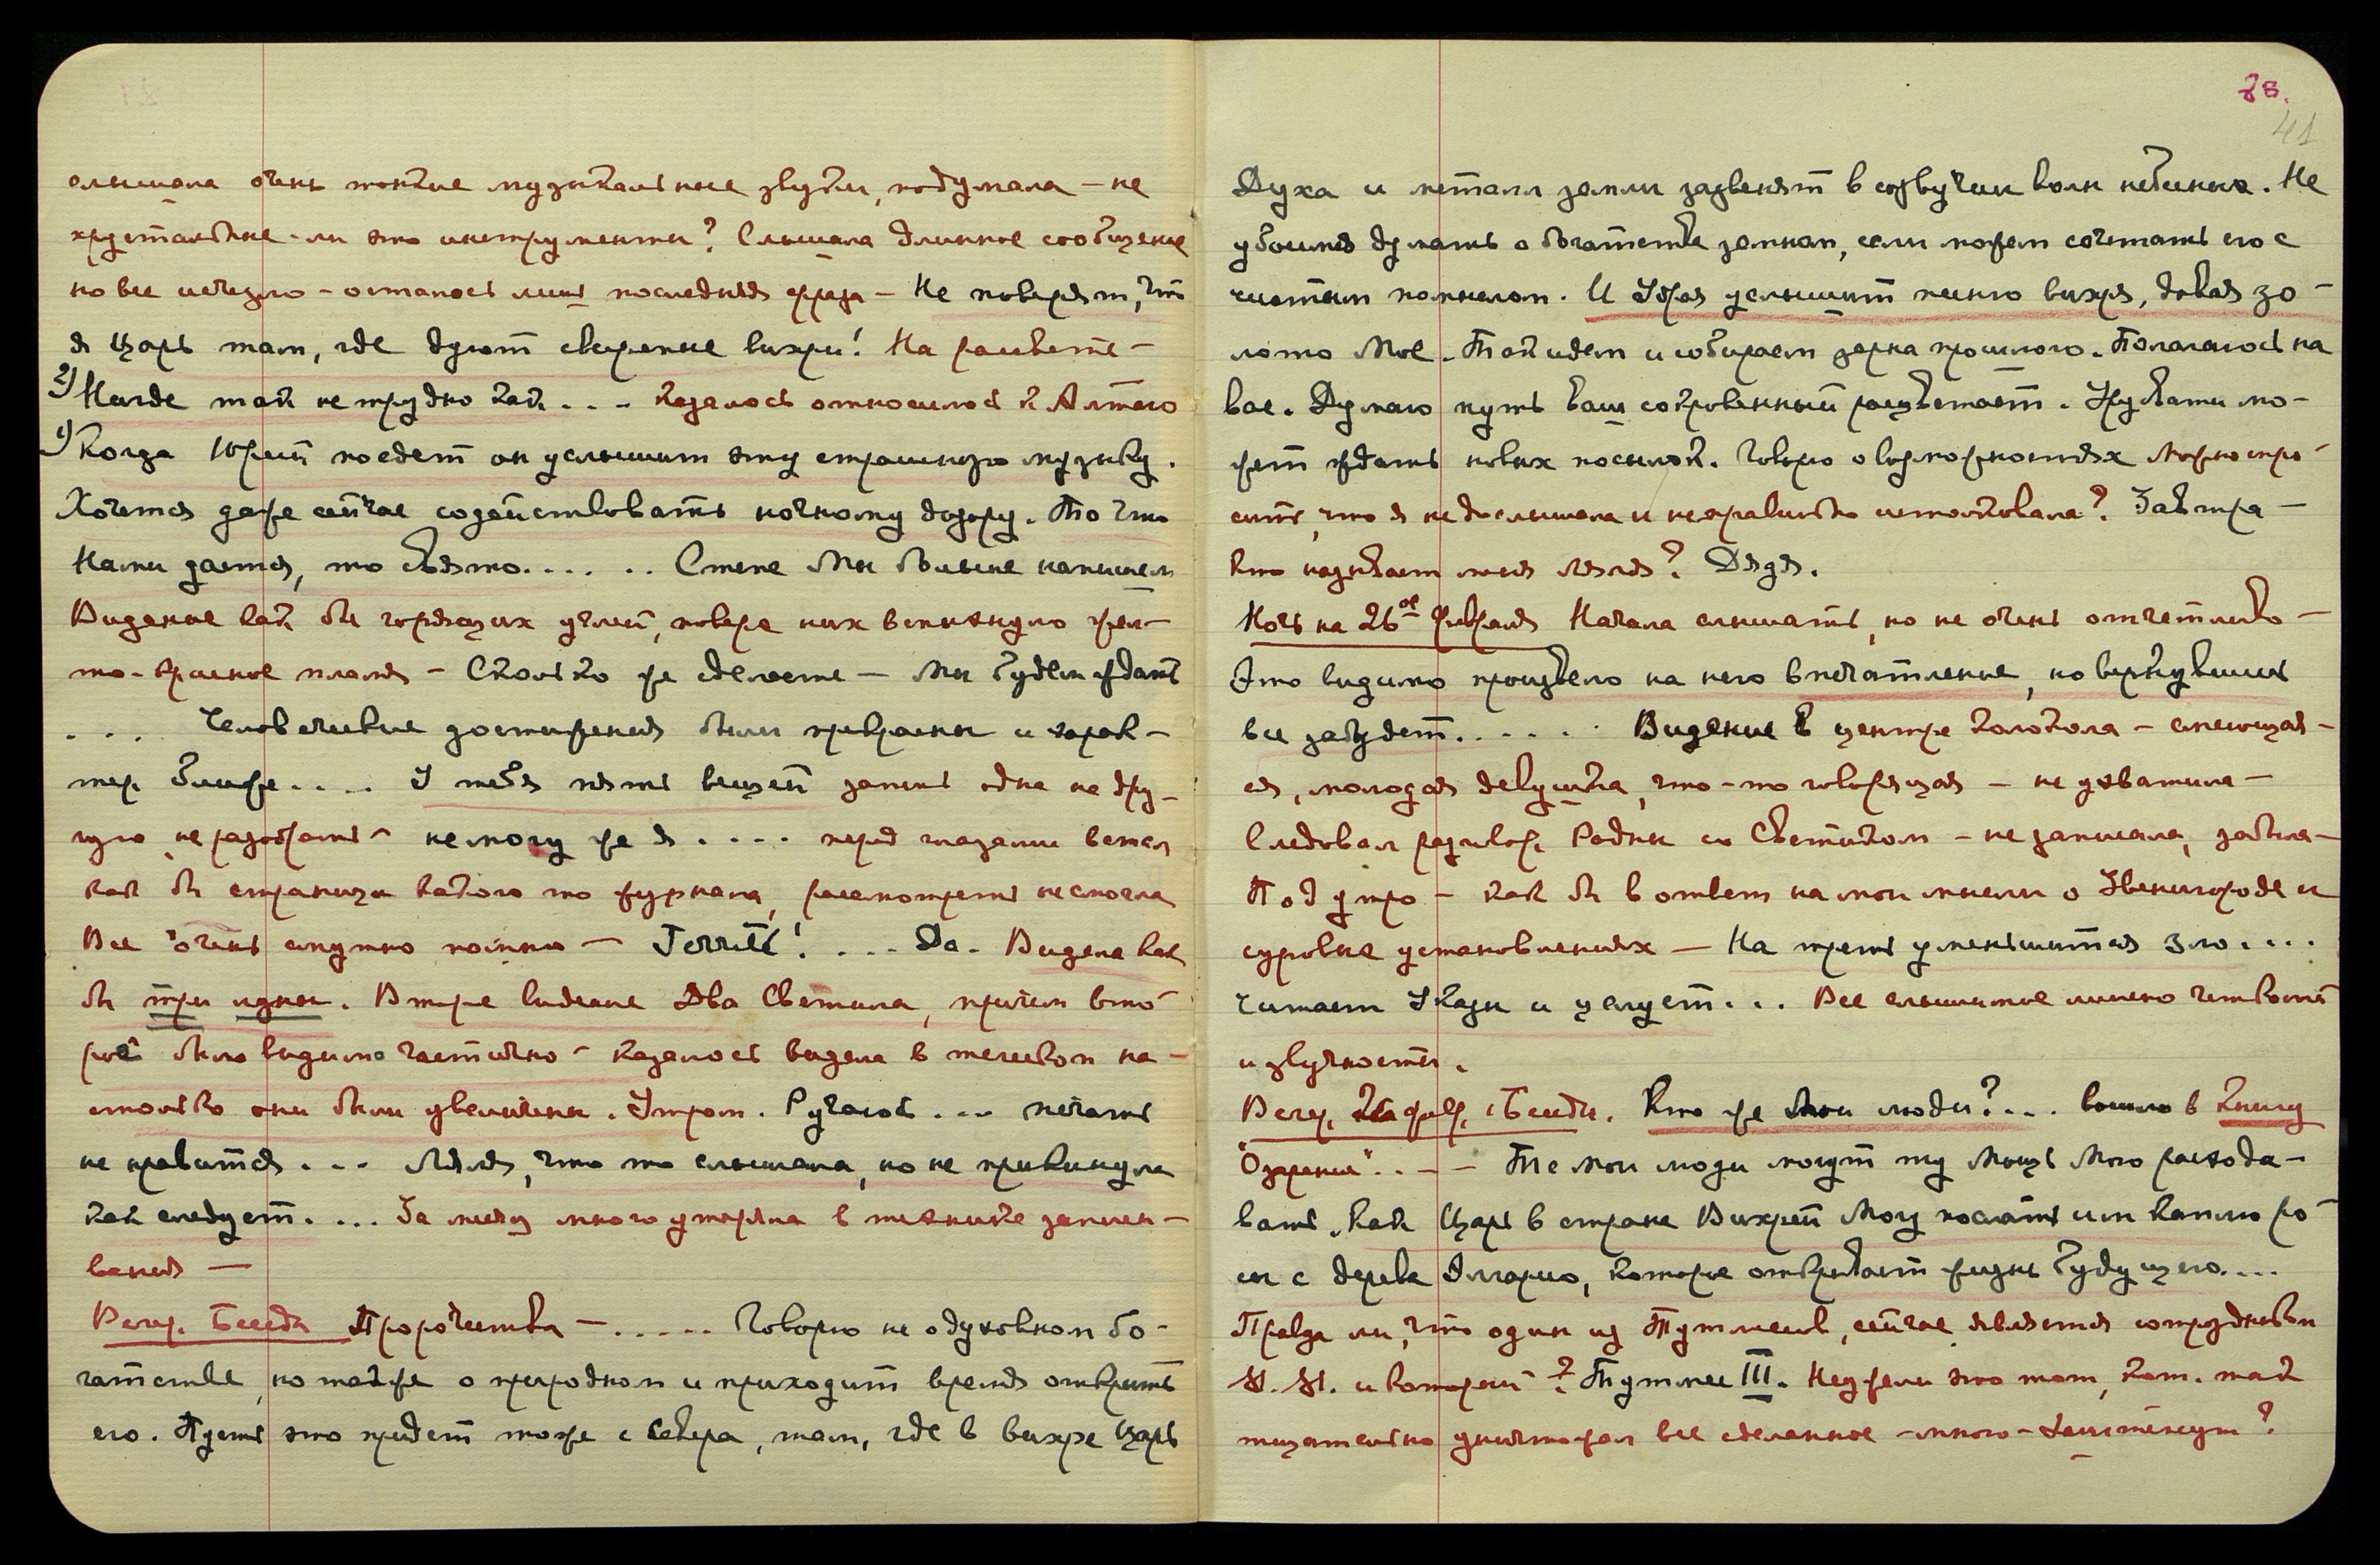 слышала очень тонкие музыкальные звуки, подумала – не
хрустальные-ли это инструменты? Слышала длинное сообщение
но все исчезло – осталось лишь последняя фраза – Не поверят, что
я царь там, где дуют свирепые вихри! На рассвете –
2) Нигде так не трудно как . . . казалось относилось к Алтаю
1) Когда Юрий поедет он услышит эту страшную музыку.
Хочется даже сейчас содействовать ночному дозору. То что
Нами дается, то свято. . . . . . Степе Мы больше напишем
Видение как бы горящих углей, поверх них вспыхнуло жел-
то-красное пламя – Сколько же сделаете – мы будем ждать
. . . Человеческие достижения были прекрасны и харак-
тер ближе. . . . У тебя пять вещей запись одна на дру-
гую не разобрать – не могу же я . . . . перед глазами встал
как бы страницы какого то журнала, рассмотреть не смогла
Все очень смутно помню – Terrill! . . . . Да. Видела как
бы три луны. Вторые видела Два Светила, причем вто-
рое было видимо частично – казалось видела в телескоп на-
столько они были увеличены. Утром. Ручаюсь . . . печать
не нравится . . . Ляля, что то слышала, но не прикинула
как следует. . . . За месяц много утеряна в технике запоми-
вания –
Вечер. Беседа Пророчества – . . . . . Говорю не о духовном бо-
гатстве, но также о природном и приходит время открыть
его. Пусть это придет тоже с Севера, там, где в вихре Царь
28.
41
Духа и металл земли зазвенят в созвучии волн небесных. Не
убоимся думать о богатстве земном, если можем сочетать его с
чистым помыслом. И Удрая услышит песню вихря, давая зо-
лото Мое. Так идем и собираем зерна прошлого. Полагаюсь на
вас. Думаю путь ваш сокровенный расцветает. Нужно мо-
жет ждать новых посылок. Говорю о возможностях Можно спро-
сить, что я недослышала и неправильно истолковала? Завтра –
Кто называет меня Ляля? Дядя.
Ночь на 26ое февраля Начала слышать, но не очень отчетливо –
Это видимо произвело на него впечатление, но вернувшись
все забудет. . . . . . Видение в центре колокола – смеющая-
ся, молодая девушка, что-то говорящая – не ухватила –
Следовал разговор Радны со Светиком – не записала, забыла –
Под утро – как бы в ответ на мои мысли о Звенигороде и
суровых установлениях – На треть уменьшится зло. . . .
Читает Указы и целует. . . Все слышимое лишено четкости
и звучности.
Вечер. 26 февр. Беседа. Кто же Мои люди? . . . вошло в Книгу
"Озарение". . – – Те Мои люди могут ту Мощь Мою расхода-
вать, как Царь в стране Вихрей Могу послать им каплю ро-
сы с дерева Эллорио, которые открывает жизнь будущего. . . .
Правда ли, что один из Тутмесов, сейчас является сотрудником
Н. Н. и который? Тутмес III. Неужели это тот, кот. так
тщательно уничтожал все сделанное много-